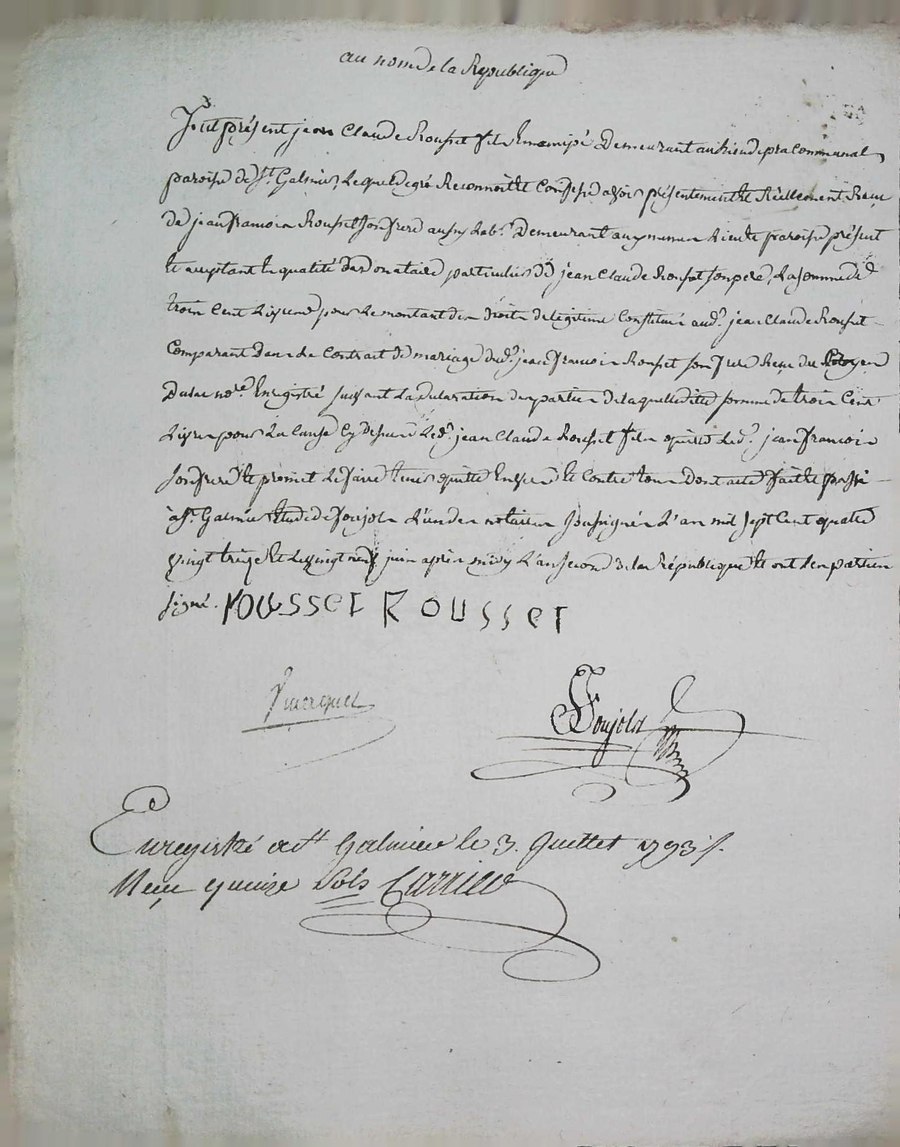 au nom de la Republique
fut présent jean Claude Rousset fils Emancipé Demeurant au lieu de pra Communal
paroisse de St. Galmier Lequel de gré Reconnoit et Confesse avoir présentement et Réellement Receu
de jean francois Rousset son frere aussy lab.r Demeurant au mesme Lieu et paroisse présent
et aceptant En qualité de donataire particulier de jean Claude Rousset son pere, La somme de
trois Cent Livres pour Le montant des droits de légitime Constitués aud.t jean Claude Rousset
Comparant dans Le Contrat de mariage dud.t jean francois Rousset son frere Reçu du Citoyen
no.re Enregistré suivant La déclaration des parties de laquelle ditte somme de trois Cent
Livres pour La Cause Cy dessus Led.t jean Claude Rousset fils quitte Led.t jean francois
son frere Et promet Le faire tenir quitte Envers Et Contre tous dont acte fait Et passé
à St. Galmier Etude de Poujols L'un des notaires soussignés L'an mil sept Cent quatre
vingt treize Et Le vingt neuf juin après midy L'an second de la République Et ont Les parties
signé. ROUSSET ROUSSET
Poujols
Enregistré a St Galmier le 3. Juillet 1793 /.
Reçu quinze Sols Carrier